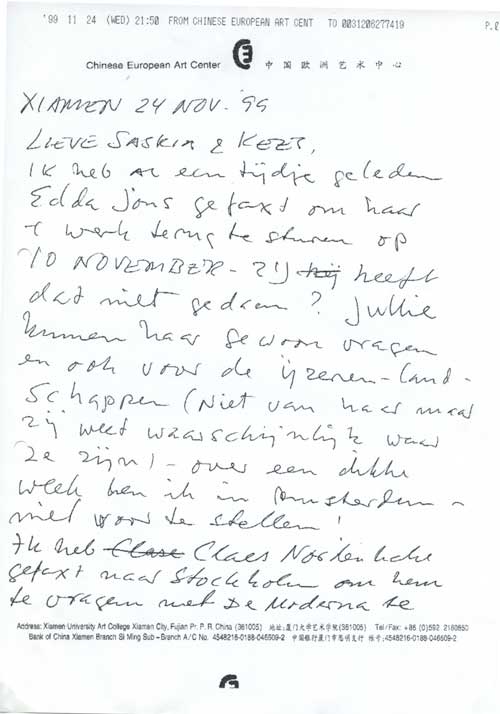 '99 11 24 (WED) 21:50 FROM CHINESE EUROPEAN ART CENT TO 0031206277419 P.
Chinese European Art Center 中国欧洲艺术中心
XIAMEN 24 NOV. '99
LIEVE SASKIA & KEES,
IK heb al een tijdje geleden
Edda Jons gefaxt om haar
't werk terug te sturen op
10 NOVEMBER - ZIJ hij heeft
dat niet gedaan? Jullie
kunnen haar gewoon vragen
en ook voor de ijzeren-land-
schappen (Niet van haar maar
zij weet waarschijnlijk waar
ze zijn) - over een dikke
week ben ik in Amsterdam -
niet voor te stellen!
Ik heb Claes
gefaxt naar Stockholm om hem
te vragen met De Moderna te
Address: Xiamen University Art College Xiamen City, Fujian Pr. P.R. China (361005) 地址:厦门大学艺术学院(361005) Tel/Fax: +86 (0)592. 2180850
Bank of China Xiamen Branch Si Ming Sub-Branch A/C No. 4548216-0188-046509-2 中国银行厦门市思明支行 帐号:4548216-0188-046509-2